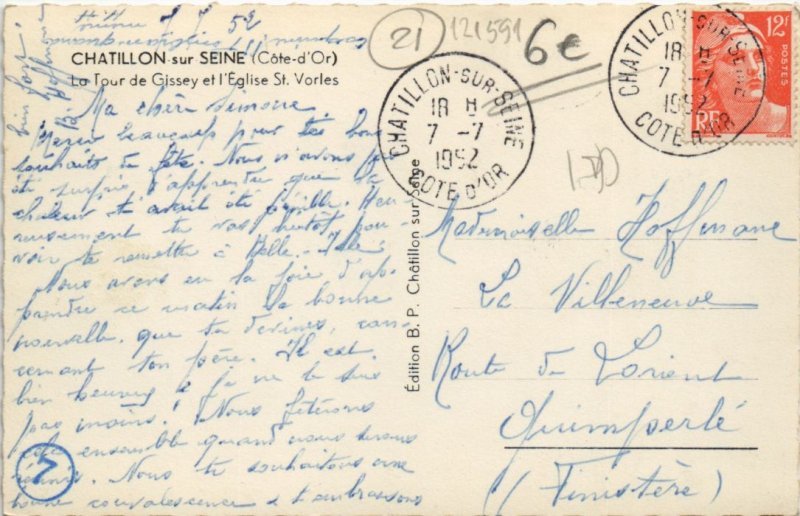 7 7 52
CHATILLON-sur SEINE (Côte-d'Or)
La Tour de Gissey et l'Église St. Vorles
Ma chère Simone
Merci beaucoup pour tes bons
souhaits de fête. Nous n'avons pas
été surpris d'apprendre que la
chaleur t'avait été pénible. Heu-
reusement tu vas bientôt pou-
voir te remettre à Belle-Isle!
Nous avons eu la joie d'ap-
prendre ce matin la bonne
nouvelle, que tu devines, con-
cernant ton père. Il est
bien heureux & je ne le suis
pas moins! Nous fêterons
cela ensemble quand nous serons
réunis. Nous te souhaitons une
bonne convalescence & t'embrassons
bien fort
21
121591
6€
CHATILLON-SUR-SEINE
18 H
7 -7
1952
COTE D'OR
CHATILLON-SUR-SEINE
18 H
7 -7
1952
COTE D'OR
12f
POSTES
RF
Édition B. P. Châtillon sur Seine
Mademoiselle Hoffmann
La Villeneuve
Route de Lorient
Quimperlé
(Finistère)